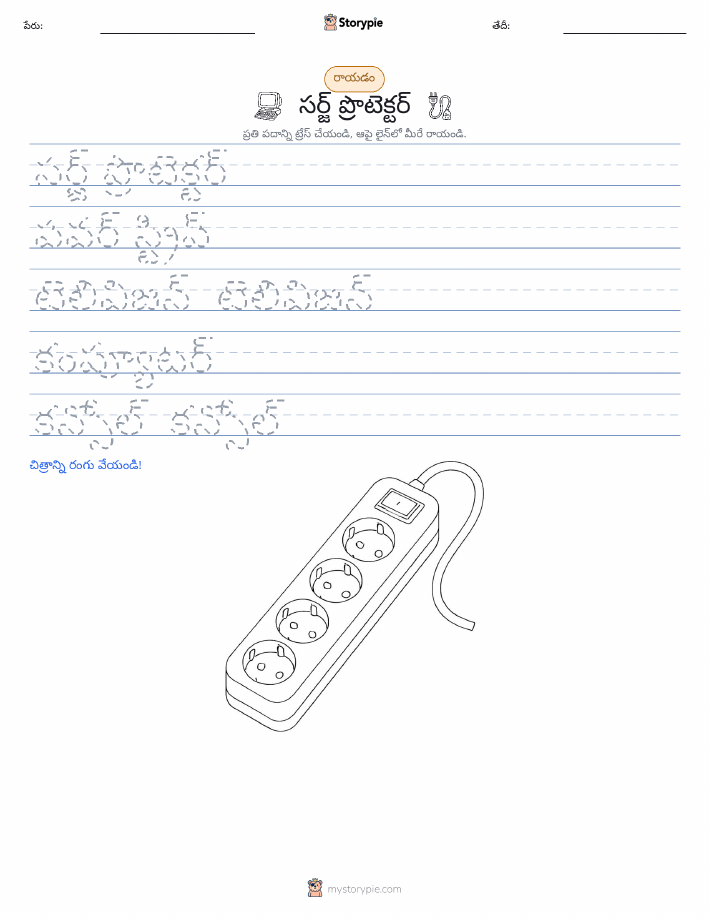 పేరు: Storypie తేదీ:
రాయడం
సర్జ్ ప్రొటెక్టర్
ప్రతి పదాన్ని ట్రేస్ చేయండి, ఆపై లైన్‌లో మీరే రాయండి.
సర్జ్ ప్రొటెక్టర్
పవర్ స్ట్రిప్
టెలివిజన్ టెలివిజన్
కంప్యూటర్
కన్సోల్ కన్సోల్
చిత్రాన్ని రంగు వేయండి!
mystorypie.com